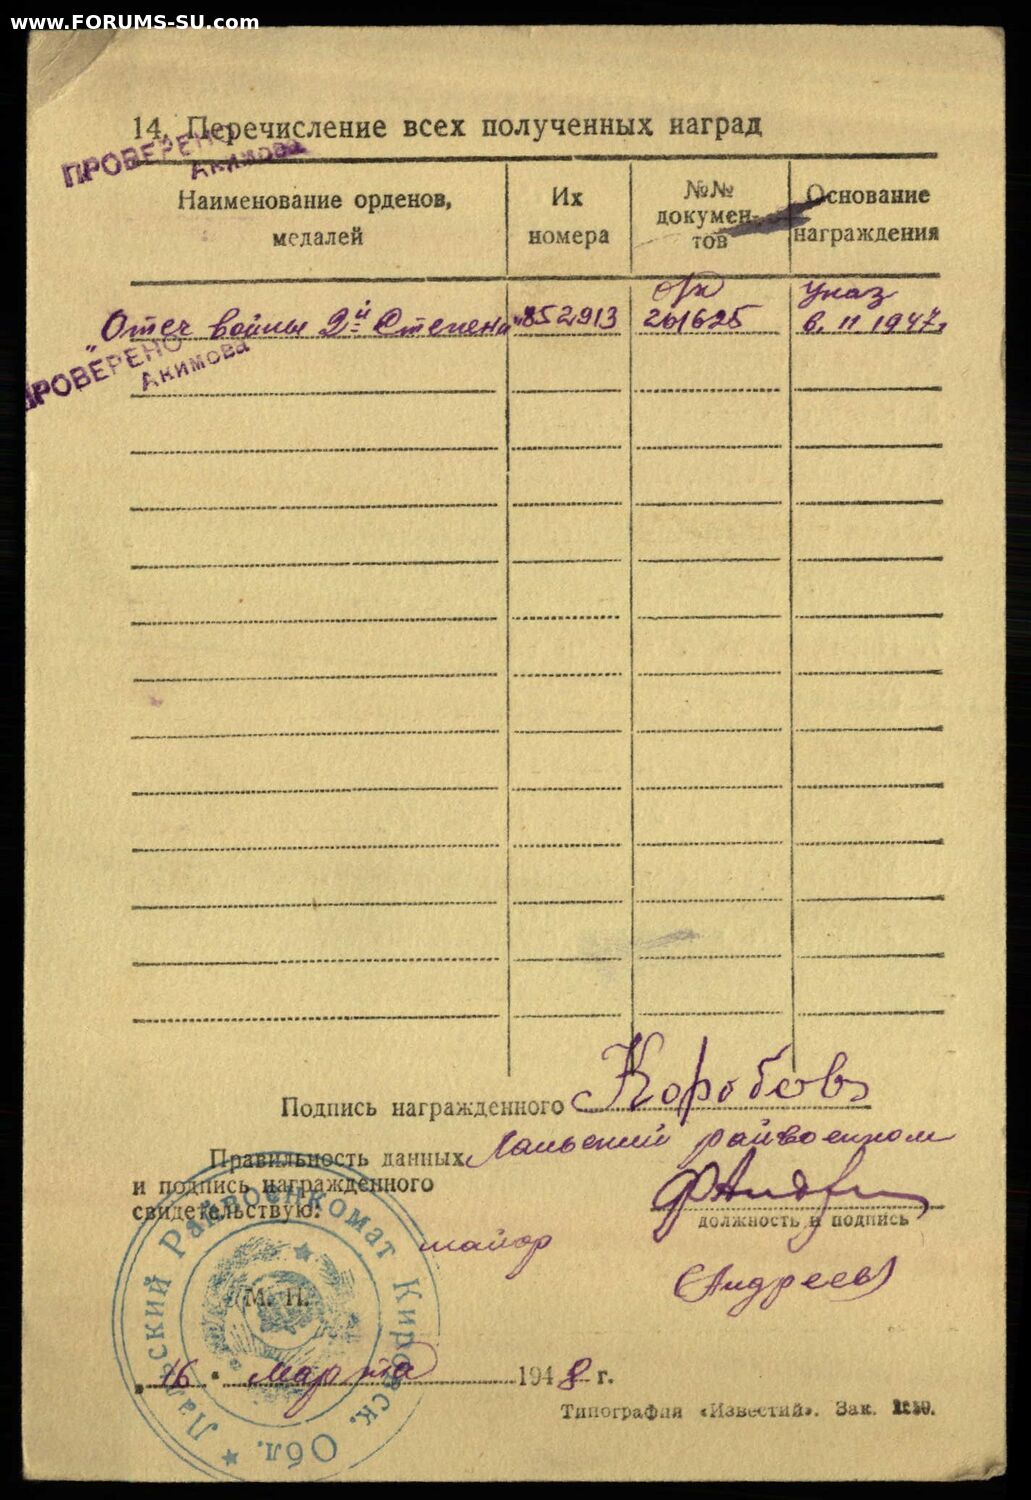 www.FORUMS-SU.com
14. Перечисление всех полученных наград
ПРОВЕРЕНО
Акимова
Наименование орденов,
медалей
Их
номера
№№
докумен-
тов
Основание
награждения
Указ
„Отеч войны 2й Степени" 852913 261625 6. 11. 1947г
ПРОВЕРЕНО
Акимова
Подпись награжденного Коробов
Правильность данных Лальский райвоенком
и подпись награжденного
свидетельствую:
должность и подпись
майор
(Андреев)
Лальский Райвоенкомат Кировск. Обл.
М. П.
„16" марта 1948 г.
Типография «Известий». Зак.